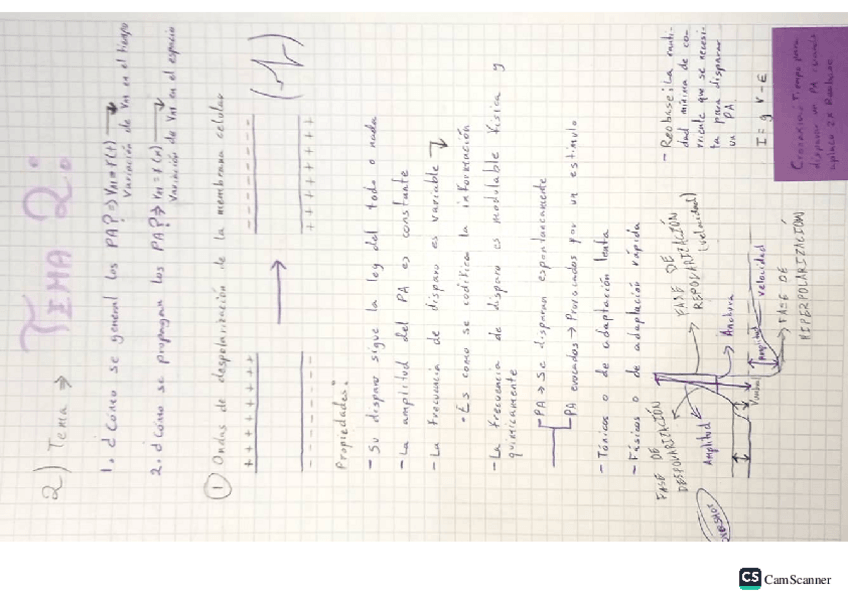 2) Tema → TEMA 2:
1. ¿Cómo se general los PA? ⇒ Vm = f(t) →
Variación de Vm en el tiempo
2. ¿Cómo se propagan los PA? ⇒ Vm = f(x) →
Variación de Vm en el espacio
① Ondas de despolarización de la membrana celular
+ + + + + + + +
- - - - - - -
- - - - - - -
+ + + + + + +
Propiedades:
- Su disparo sigue la ley del todo o nada
- La amplitud del PA es constante
- La frecuencia de disparo es variable
- Es como se codifica la información
- La frecuencia de disparo es modulable física y
químicamente
PA → Se disparan espontáneamente
PA evocados → Provocados por un estímulo
- Tónicos o de adaptación lenta
- Fásicos o de adaptación rápida
FASE DE
DESPOLARIZACIÓN
FASE DE
REPOLARIZACIÓN
(velocidad)
Amplitud
Anchura
Amplitud
velocidad
FASE DE
HIPERPOLARIZACIÓN
- Reobase: La canti-
dad mínima de co-
rriente que se necesi-
ta para disparar
un PA
I = g V - E
Cronaxia: Tiempo para
disparar un PA cuando
aplico 2x Reobase
CS CamScanner